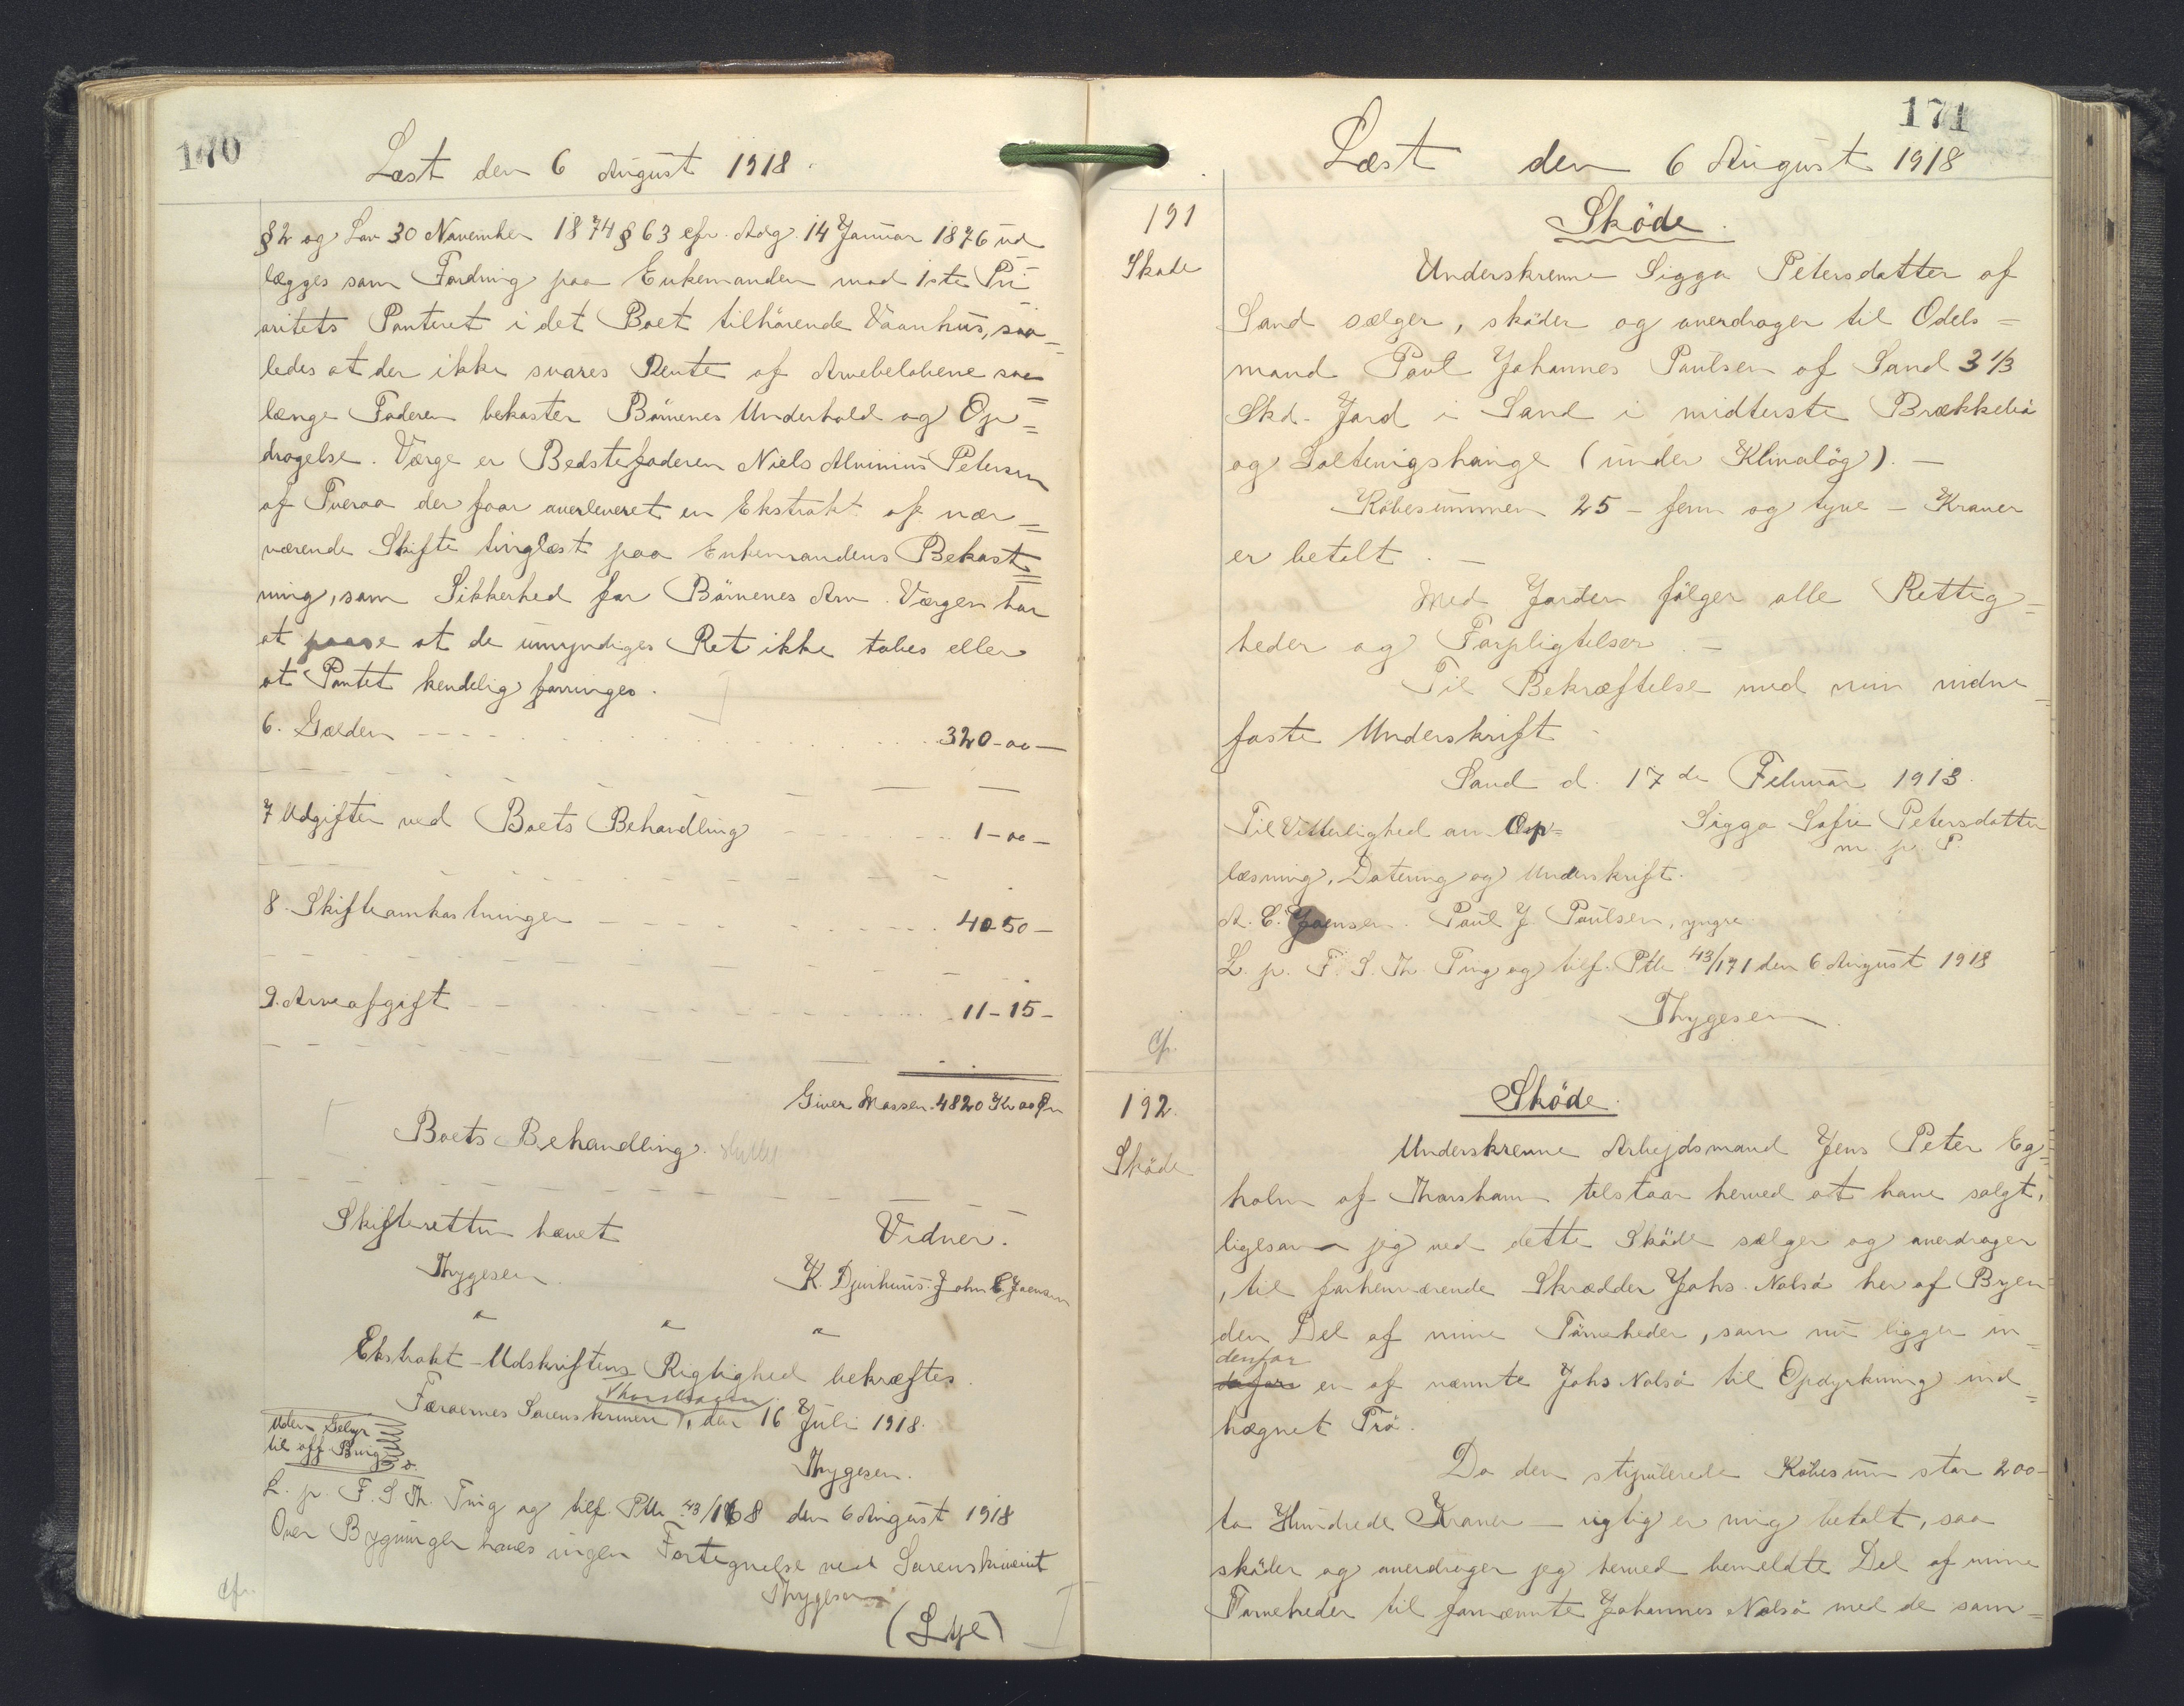 170
Læst den 6 August 1918.
§2 og Lov 30 November 1874 § 63 cfr. Adg. 14 Januar 1876 ud
lægges som Fordring paa Enkemanden mod 1ste Pri
oritets Panteret i det Boet tilhørende Vaanhus, saa-
ledes at der ikke svares Rente af Arvebeløbene saa
længe Faderen bekoster Börnenes Underhold og Op=
dragelse. Værge er Bedstefaderen Niels Aluinius Petersen
af Tveraa der faar overleveret en Ekstrakt af nær=
værende Skifte tinglæst paa Enkemandens Bekost=
ning, som Sikkerhed for Börnenes Arv. Værgen har
at paase at de umyndiges Ret ikke tabes eller
at Pantet kendelig forringes.
6. Gælden 320-00-
7 Udgifter ved Boets Behandling 1-00-
8. Skifteomkostninger 40-50-
9. Arveafgift 11-15-
Giver Massen 4820 Kr 00 Ör
Boets Behandling sluttet
Skifteretten hævet
Vidner.
Thygesen
K. Djurhuus. John C. Joensen
Ekstrakt-Udskriftens Rigtighed bekræftes.
Thorshavn
Færøernes Sorenskriveri, den 16 Juli 1918.
Uden Gebyr
til off. Brug
Thygesen.
L. p. F. S Th. Ting og tilf. Ptb. 43/168 den 6 August 1918
Over Bygningen haves ingen Fortegnelse ved Sorenskriveriet
Thygesen
cfr.
(Lye)
171
Læst den 6 August 1918
191
Sköde
Sköde.
Underskrevne Sigga Petersdatter af
Sand sælger, sköder og overdrager til Odels=
mand Poul Johannes Paulsen af Sand 3 1/3
Skd. Jord i Sand i midterste Brækkeliá
og Soltuigshange (under Klivalög). -
Köbesummen 25 - fem og tyve - Kroner
er betalt. -
Med Jorden fölger alle Rettig=
heder og Forpligtelser. -
Til Bekræftelse med min vidne=
faste Underskrift.
Sand d. 17 de Februar 1913.
Til Vitterlighed om Op=
Sigga Sofie Petersdatter
m. p. P.
læsning, Datering og Underskrift.
A. C. Joensen. Poul J. Paulsen, yngre.
L. p. F. S. Th. Ting og tilf. Ptb. 43/171 den 6 August 1918
Thygesen.
Cfr.
192.
Sköde
Sköde.
Underskrevne Arbejdsmand Jens Peter Eg=
holm af Thorshavn tilstaar herved at have solgt,
ligesom jeg ved dette Sköde sælger og overdrager
, til forhenværende Skrædder Johs. Nolsö her af Byen
den Del af mine Törveheder, som nu ligger in=
denfor
en af nævnte Johs Nolsö til Opdyrkning ind=
hægnet Trö.
Da den stipulerede Köbesum stor 200-
to Hundrede Kroner - rigtig er mig betalt, saa
sköder og overdrager jeg herved bemeldte Del af mine
Törveheder til fornævnte Johannes Nolsö med de sam=